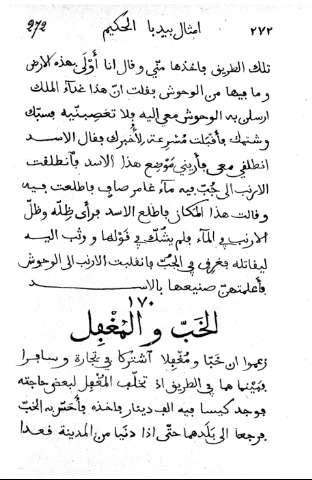 ٢٧٢ امثال بيدبا الحكيم 272
تلك الطريق فاخذها منّي وقال انا أَوْلَى بهذه الارض
وما فيها من الوحوش فقلت انّ هذا غدآء الملك
ارسلنى به الوحوش معى اليه فلا تغصبنّيه فسبّك
وشتمك فأقبلت مُسْرعة لأُخبرك فقال الاسد
انطلقي معى فأريني مَوْضِع هذا الاسد فانطلقت
الارنب الى جُبّ فيه مآء غامر صافٍ فاطلعت فيه
وقالت هذا المكان فاطلع الاسد فرأى ظلّه وظلّ
الارنب في المآء فلم يشُكّ في قَوْلها و وثب اليه
ليقاتله فغرق في الجُبّ فانقلبت الارنب الى الوحوش
فأعلمتهنّ صنيعها بالاسد
١٧٠
الخَبّ و المُغْفِل
زعموا ان خَبّا و مُغْفِلا آشتركا في تجارة و سافرا
فبَيْنما هما في الطريق اذ تخلّف المُغْفِل لبعض حاجته
فوجد كيسا فيه الف دينار فاخذه فأحَسّ به الخَبّ
فرجعا الى بَلَدهما حتّى اذا دنَيا من المدينة قعدا